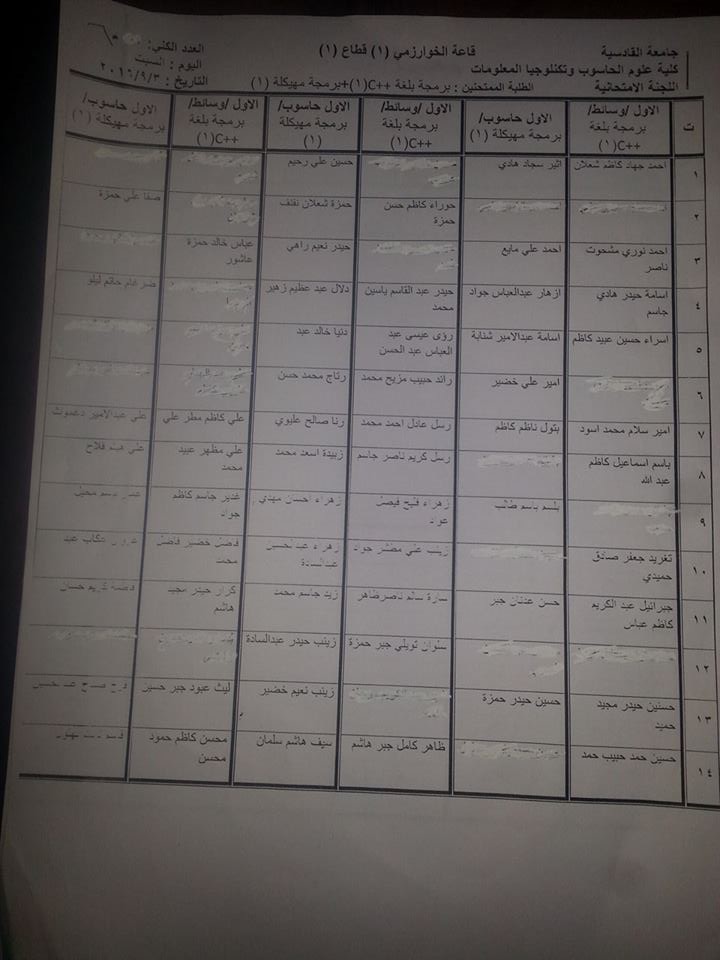 جامعة القادسية
كلية علوم الحاسوب وتكنلوجيا المعلومات
اللجنة الامتحانية
قاعة الخوارزمي (١) قطاع (١)
الطلبة الممتحنين : برمجة بلغة C++(١)+برمجة مهيكلة (١)
العدد الكلي:
اليوم : السبت
التاريخ : ٢٠١٦/٩/٣
ت | الاول /وسائط/ برمجة بلغة C++(١) | الاول حاسوب/ برمجة مهيكلة (١) | الاول /وسائط/ برمجة بلغة C++(١) | الاول حاسوب/ برمجة مهيكلة (١) | الاول /وسائط/ برمجة بلغة C++(١) | الاول حاسوب/ برمجة مهيكلة (١)
١ احمد جهاد كاظم شعلان | اثير سجاد هادي | حسين علي رحيم
٢ حوراء كاظم حسن حمزة | حمزة شعلان نفنف | صفا علي حمزة
٣ احمد نوري مشحوت ناصر | احمد علي مايع | حيدر نعيم راهي | عباس خالد حمزة عاشور
٤ اسامة حيدر هادي جاسم | ازهار عبدالعباس جواد | حيدر عبد القاسم ياسين محمد | دلال عبد عظيم زهير | ضرغام حاتم ليلو
٥ اسراء حسين عبيد كاظم | اسامة عبدالامير شنابة | رؤى عيسى عبد العباس عبد الحسن | دنيا خالد عبد
٦ امير علي خضير | رائد حبيب مزيح محمد | رتاج محمد حسن
٧ امير سلام محمد اسود | بتول ناظم كاظم | رسل عادل احمد محمد | رنا صالح عليوي | علي كاظم مطر علي | علي عبدالامير دعموث
٨ باسم اسماعيل كاظم عبد الله | رسل كريم ناصر جاسم | زبيدة اسعد محمد | علي مظهر عبيد محمد | علي فلاح
٩ بلسم باسم طالب | زهراء فليح فيصل عواد | زهراء احسان مهدي | غدير جاسم كاظم جواد
١٠ تغريد جعفر صادق حميدي | زينب علي مظفر جواد | زهراء عبدالحسين عبدالسادة | فاضل خضير فاضل محمد | عبد
١١ جبرائيل عبد الكريم كاظم عباس | حسن عدنان جبر | سارة سالم ناصر ظاهر | زيد جاسم محمد | كرار حيدر مجيد هاشم | فاطمة كريم حسان
١٢ سلوان تويلي جبر حمزة | زينب حيدر عبدالسادة
١٣ حسنين حيدر مجيد حميد | حسين حيدر حمزة | زينب نعيم خضير | ليث عبود جبر حسين | فرح صباح عبد حسين
١٤ حسين حمد حبيب حمد | ظاهر كامل جبر هاشم | سيف هاشم سلمان | محسن كاظم حمود محسن